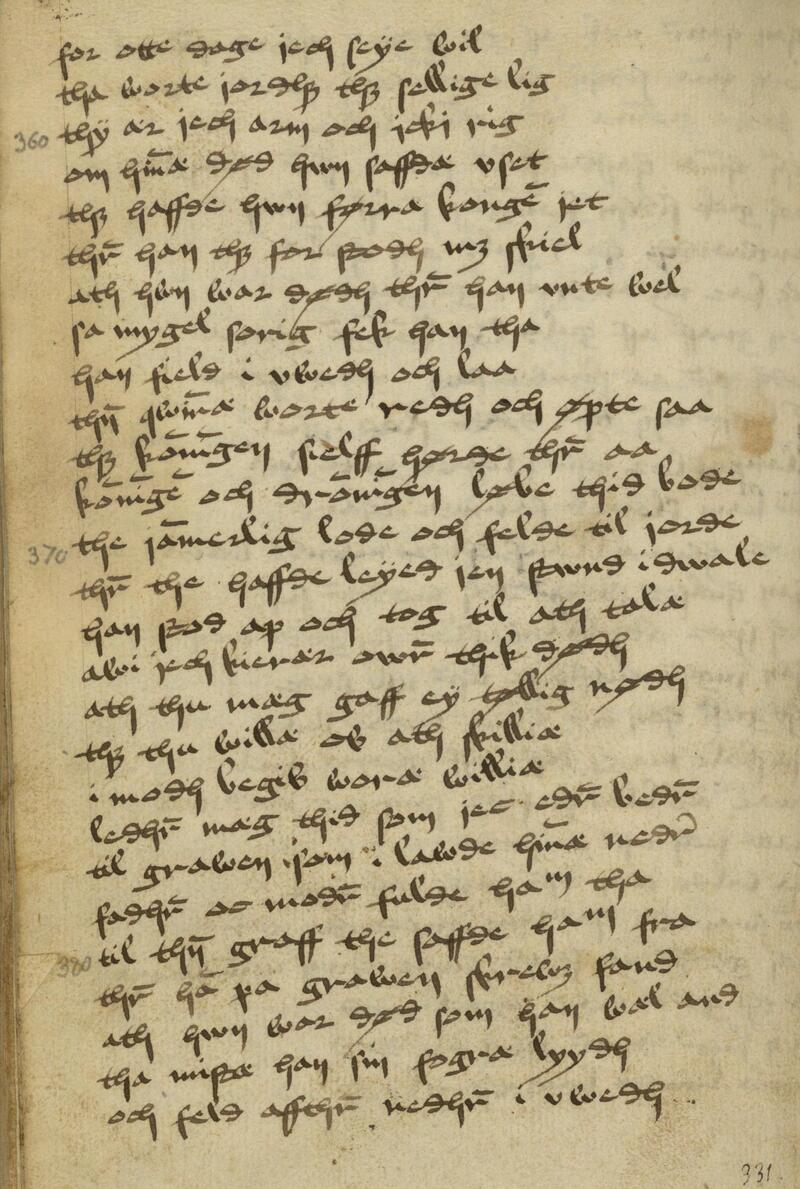 for otte dage jech seye wil
tha worte jordhꝫ thꝫ sellige lig
360 thy ær jech arm och jcki rig
om hm̄æ død hwn saffdæ vset
thꝫ haffde hwn førra kongē jet
thr̄ han thꝫ for stodh mꝫ skiel
ath hwn war dødh thr̄ han vnte wel
sa mygel sorig fek han tha
han field i vwedh och laa
thn̄ qwīnæ worte redh och øpte saa
thꝫ kōnīgen sielff hørde thr̄ aa
kōnīgē och drōnīgen løbe thid bode
370 the jāmerlig lode och felde til jorde
thr̄ the haffde leyed jen stwnd i dwale
han stod ap och tog til ath talæ
awi jech kierær owr̄ thik dødh
ath thu mæg gaff ey tøllig nødh
thꝫ thu willæ os ath skilliæ
i modh begis woræ williæ
ledhr̄ mæg thid som jec edr̄ bedr̄
til grawen som i lawde hm̄æ nedr̄
fadhr̄ oc modr̄ fulde haᵐ tha
til thn̄ graff the saffde haᵐ fra
380 thr̄ hā pa grawen skrewꝫ fand
ath hwn war død som han wæl and
tha mistæ han sin fogræ lyydh
och feld affthr̄ nedhr̄ i vwedh
331